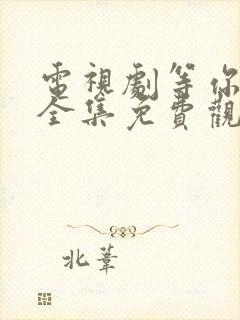 電視劇等你
全集免費觀
北葦